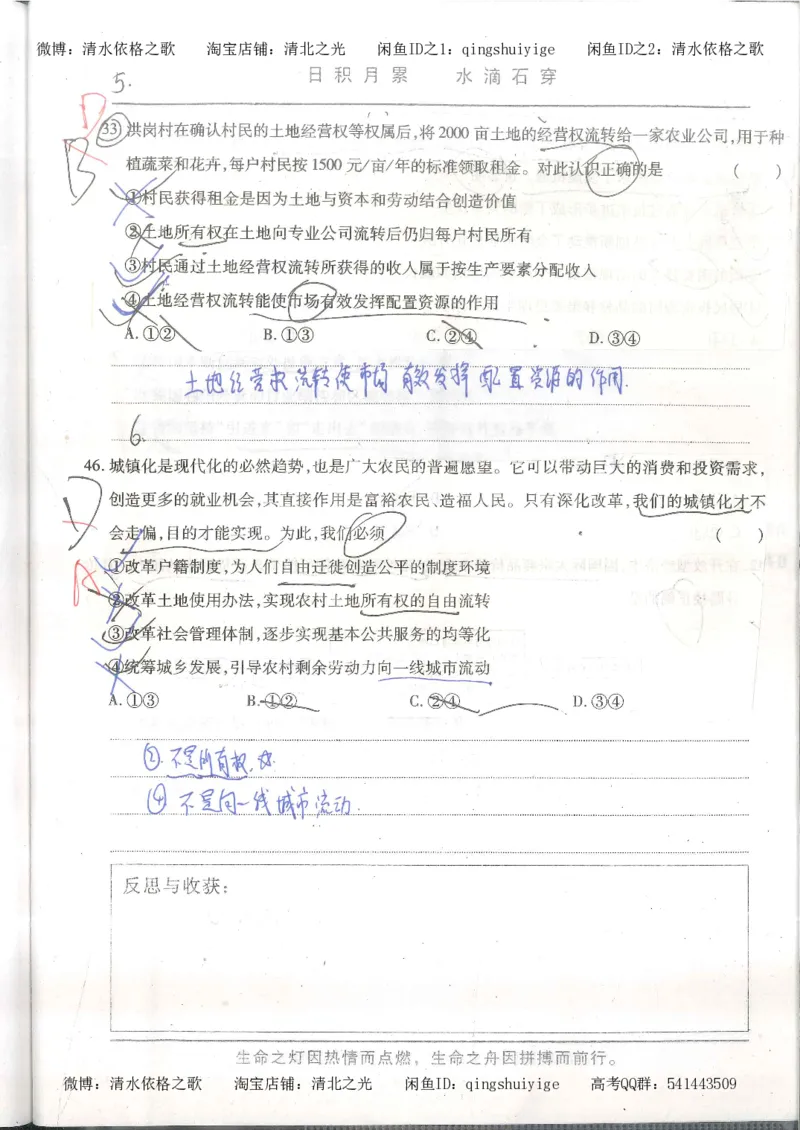 微博：清水依格之歌 淘宝店铺：清北之光 闲鱼ID之1：qingshuiyige 闲鱼ID之2：清水依格之歌
日积月累 水滴石穿
5.
D
B
33 洪岗村在确认村民的土地经营权等权属后,将2000亩土地的经营权流转给一家农业公司,用于种
植蔬菜和花卉,每户村民按1500元/亩/年的标准领取租金。对此认识正确的是 ( )
①村民获得租金是因为土地与资本和劳动结合创造价值
②土地所有权在土地向专业公司流转后仍归每户村民所有
③村民通过土地经营权流转所获得的收入属于按生产要素分配收入
④土地经营权流转能使市场有效发挥配置资源的作用
A.①② B.①③ C.②④ D.③④
土地经营权流转使市场有效发挥配置资源的作用.
6.
46. 城镇化是现代化的必然趋势,也是广大农民的普遍愿望。它可以带动巨大的消费和投资需求,
创造更多的就业机会,其直接作用是富裕农民、造福人民。只有深化改革,我们的城镇化才不
会走偏,目的才能实现。为此,我们必须 ( )
D
A
①改革户籍制度,为人们自由迁徙创造公平的制度环境
②改革土地使用办法,实现农村土地所有权的自由流转
③改革社会管理体制,逐步实现基本公共服务的均等化
④统筹城乡发展,引导农村剩余劳动力向一线城市流动
A.①③ B.①② C.②④ D.③④
②.不是所有权
④ 不是向一线城市流动.
反思与收获:
生命之灯因热情而点燃，生命之舟因拼搏而前行。
微博：清水依格之歌 淘宝店铺：清北之光 闲鱼ID：qingshuiyige 高考QQ群：541443509